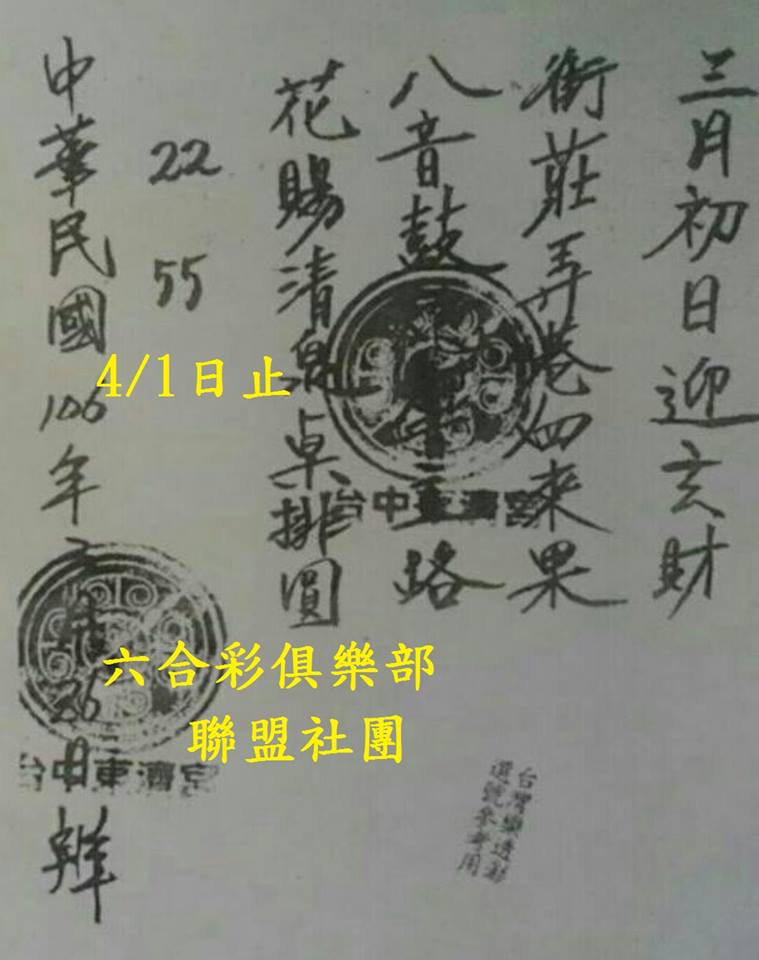 三月初日迎玄財
街莊弄巷四來果
八音鼓 路
花賜清泉桌排圓
22 55
中華民國106年 月26日
台中東濟宮
台中東濟宮
4/1日止
六合彩俱樂部
聯盟社團
台灣樂透彩
選號參考用